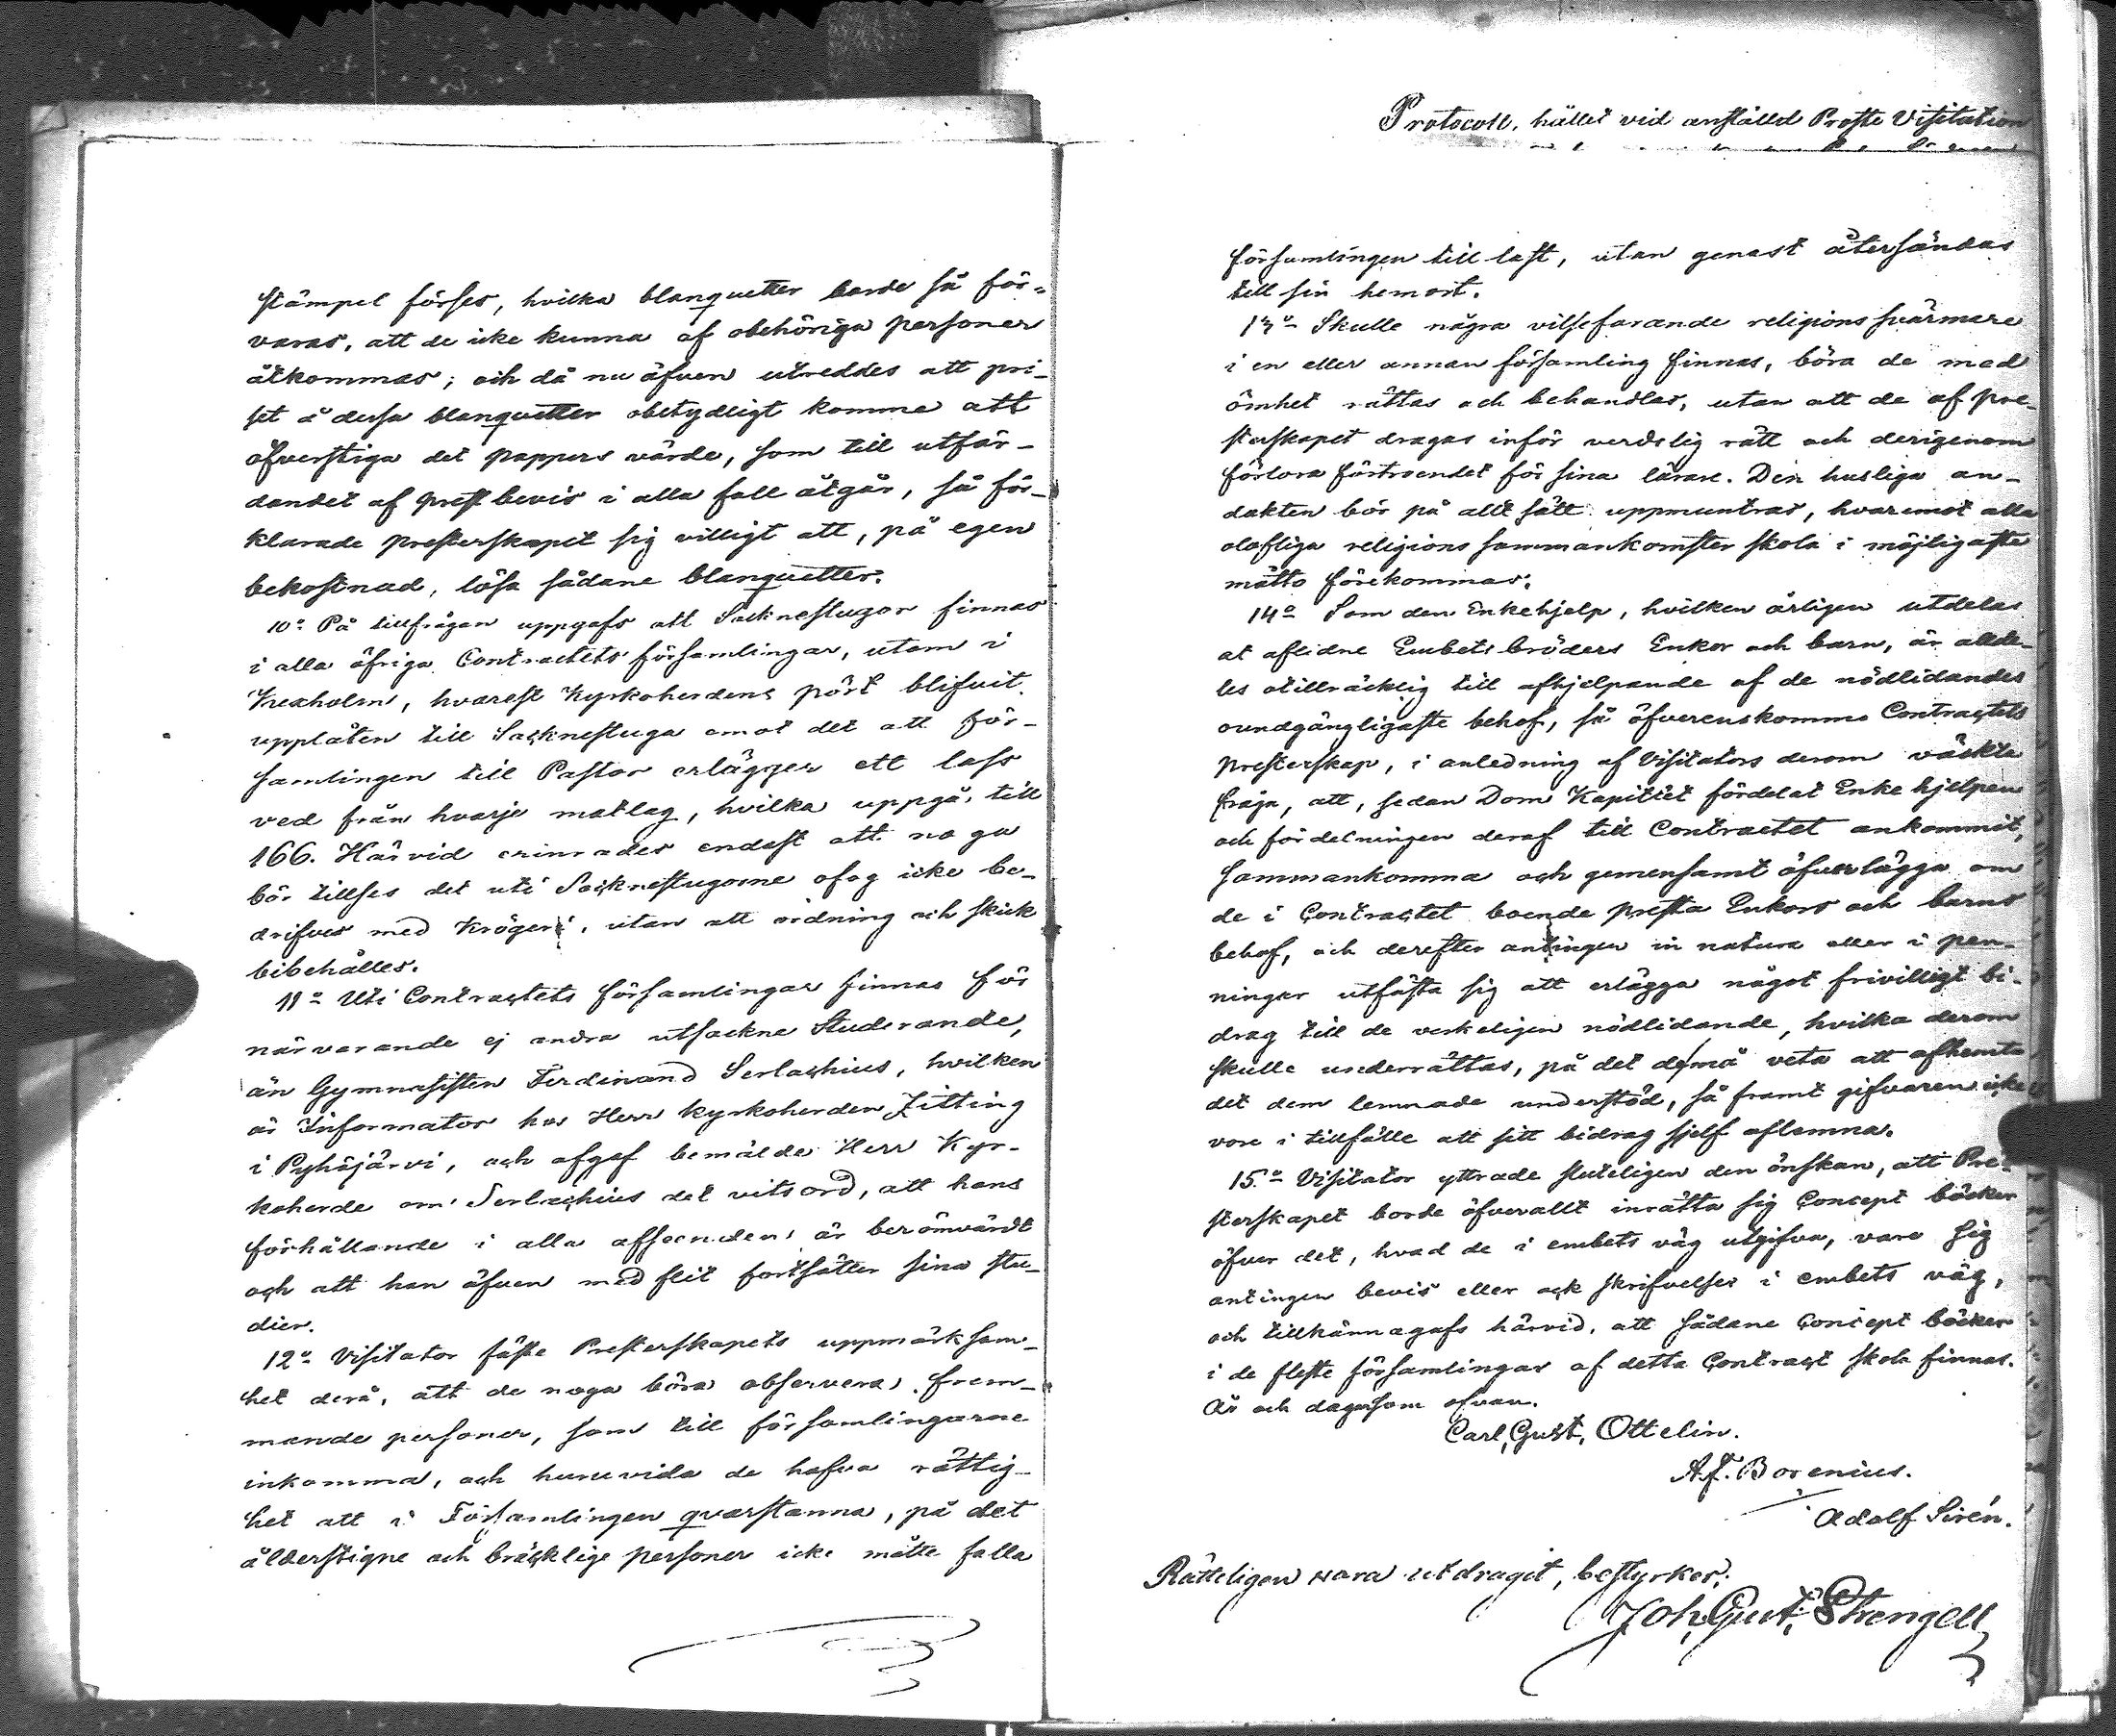 stämpel förses, hvilka blanquetter borde så för-
varas, att de icke kunna af obehöriga personer
åtkommas; och då nu äfven utreddes att pri-
set å dessa blanquetter obetydligt komme att
öfverstiga det pappers värde, som till utfär-
dandet af prestbevis i alla fall åtgår, så för-
klarade presterskapet sig villigt att, på egen
bekostnad, lösa sådane blanquetter.
10:o På tillfrågan uppgafs att Socknestugor finnas
i alla öfriga Contractets församlingar, utom i
Kexholm, hvarest Kyrkoherdens pört blifvit
upplåten till Socknestuga emot det att för-
samlingen till Pastor erlägger ett lass
ved från hvarje matlag, hvilka uppgå till
166. Härvid erinrades endast att noga
bör tillses det uti Socknestugorne ofog icke be-
drifves med Krögeri, utan att ordning och skick
bibehålles.
11:o Uti Contractets församlingar finnas för
närvarande ej andra utsockne Studerande,
än Gymnasisten Ferdinand Serlachius, hvilken
är Informator hos Herr Kyrkoherden Zitting
i Pyhäjärvi, och afgaf bemälde Herr Kyr-
koherde om Serlachius det vitsord, att hans
förhållande i alla afseenden är berömvärdt
och att han äfven med flit fortsätter sina stu-
dier.
12:o Visitator fäste Presterskapets uppmärksam-
het derå, att de noga böra observera frem-
mande personer, som till församlingarne
inkomma, och huruvida de hafva rättig-
het att i Församlingen qvarstanna, på det
ålderstigne och bräcklige personer icke måtte falla
Protocoll, hållet vid anställd Proste Visitation
församlingen till last, utan genast återsändas
till sin hemort.
13:o Skulle några vilsefarande religionssvärmare
i en eller annan församling finnas, böra de med
ömhet rättas och behandlas, utan att de af pre-
sterskapet dragas inför verdslig rätt och derigenom
förlora förtroendet för sina lärare. Den husliga an-
dakten bör på allt sätt uppmuntras, hvaremot alla
olofliga religions sammankomster skola i möjligaste
måtto förekommas.
14:o Som den Enkehjelp, hvilken årligen utdelas
at aflidne Embetsbröders Enkor och barn, är allde-
les otillräcklig till afhjelpande af de nödlidandes
oundgängligaste behof, så öfverenskomme Contractets
presterskap, i anledning af Visitators derom väckte
fråga, att, sedan Dom Kapitlet fördelat Enkehjelpen
och fördelningen deraf till Contractet ankommit,
sammankomma och gemensamt öfverlägga om
de i Contractet boende presta Enkors och barns
behof, och derefter antingen in natura eller i pen-
ningar utfästa sig att erlägga något frivilligt bi-
drag till de verkeligen nödlidande, hvilka derom
skulle underrättas, på det de må veta att afhemta
det dem lemnade understöd, så framt gifvaren icke
vore i tillfälle att sitt bidrag sjelf aflemna.
15:o Visitator yttrade sluteligen den önskan, att Pre-
sterskapet borde öfverallt inrätta sig Concept böcker
öfver det, hvad de i embets väg utgifva, vare sig
antingen bevis eller ock skrifvelser i embets väg,
och tillkännagafs härvid, att sådane Concept böcker
i de fleste församlingar af detta Contract skola finnas.
År och dag som ofvan.
Carl Gust. Ottelin.
A. F. Borenius.
Adolf Sirén.
Rätteligen vara utdraget, bestyrker;
Joh. Gust. Strengell